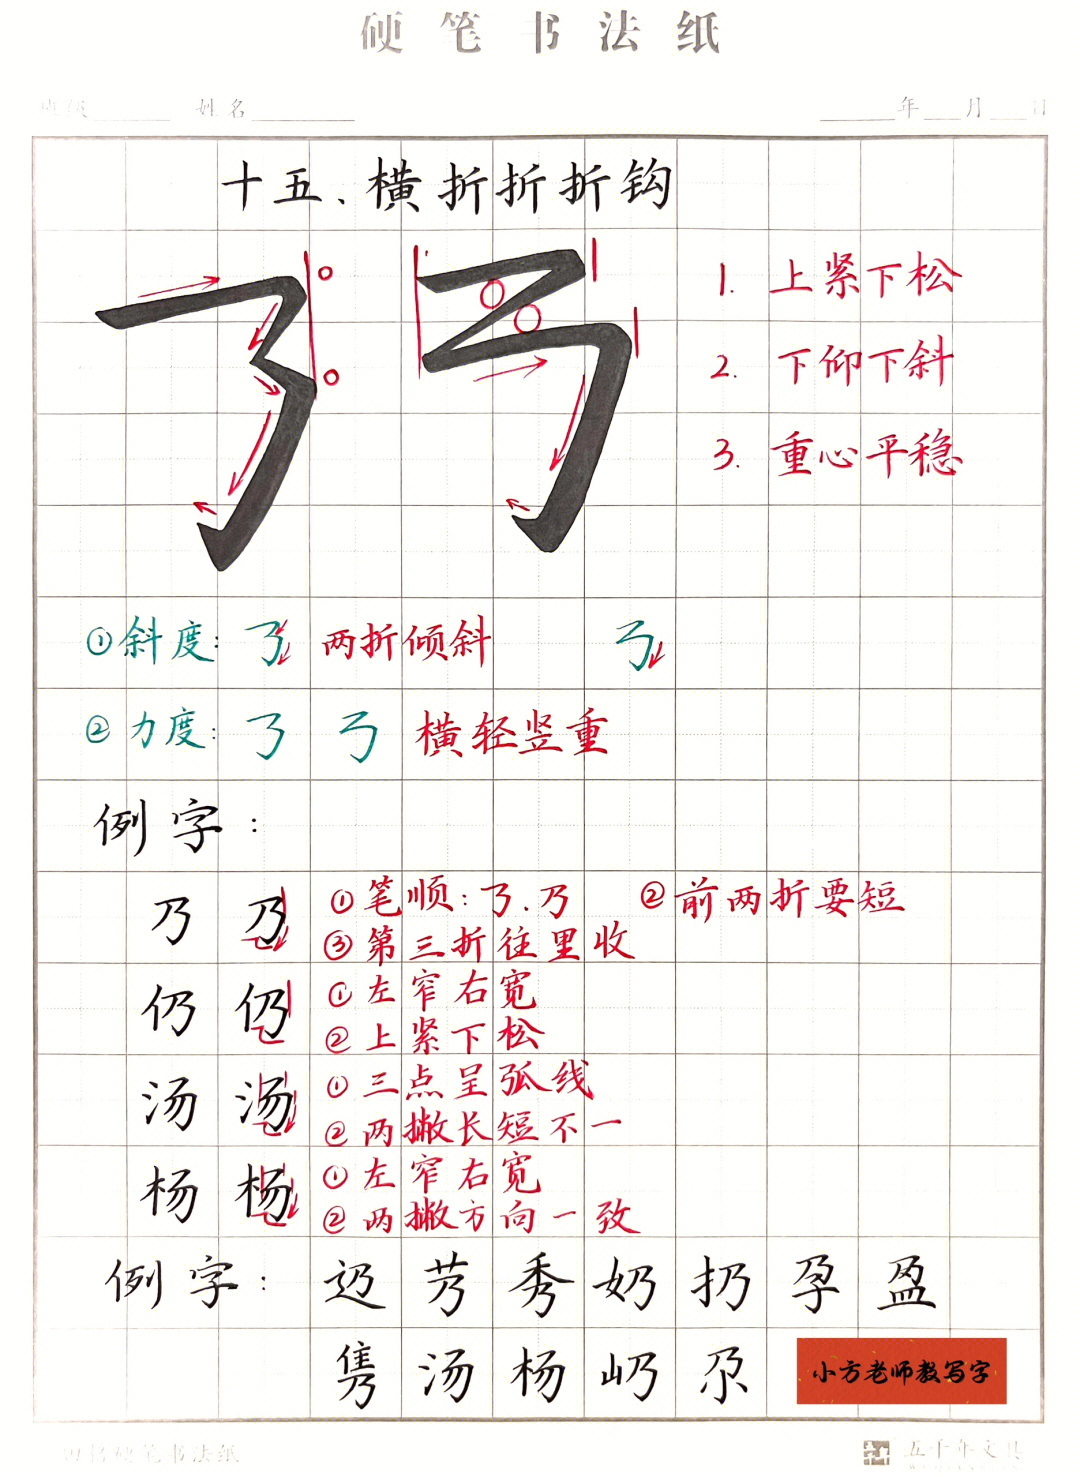 硬笔书法纸
班级 姓名 年 月 日
十五、横折折折钩
1. 上紧下松
2. 下仰下斜
3. 重心平稳
①斜度: 𠄎 两折倾斜 ㄋ
②力度: 𠄎 ㄋ 横轻竖重
例字:
乃 乃 ①笔顺:𠄎.乃 ②前两折要短
③第三折往里收
仍 仍 ①左窄右宽
②上紧下松
汤 汤 ①三点呈弧线
②两撇长短不一
杨 杨 ①左窄右宽
②两撇方向一致
例字: 迈 艿 秀 奶 扔 孕 盈
隽 汤 杨 屷 尕
小方老师教写字
硬笔书法纸
五千年文具